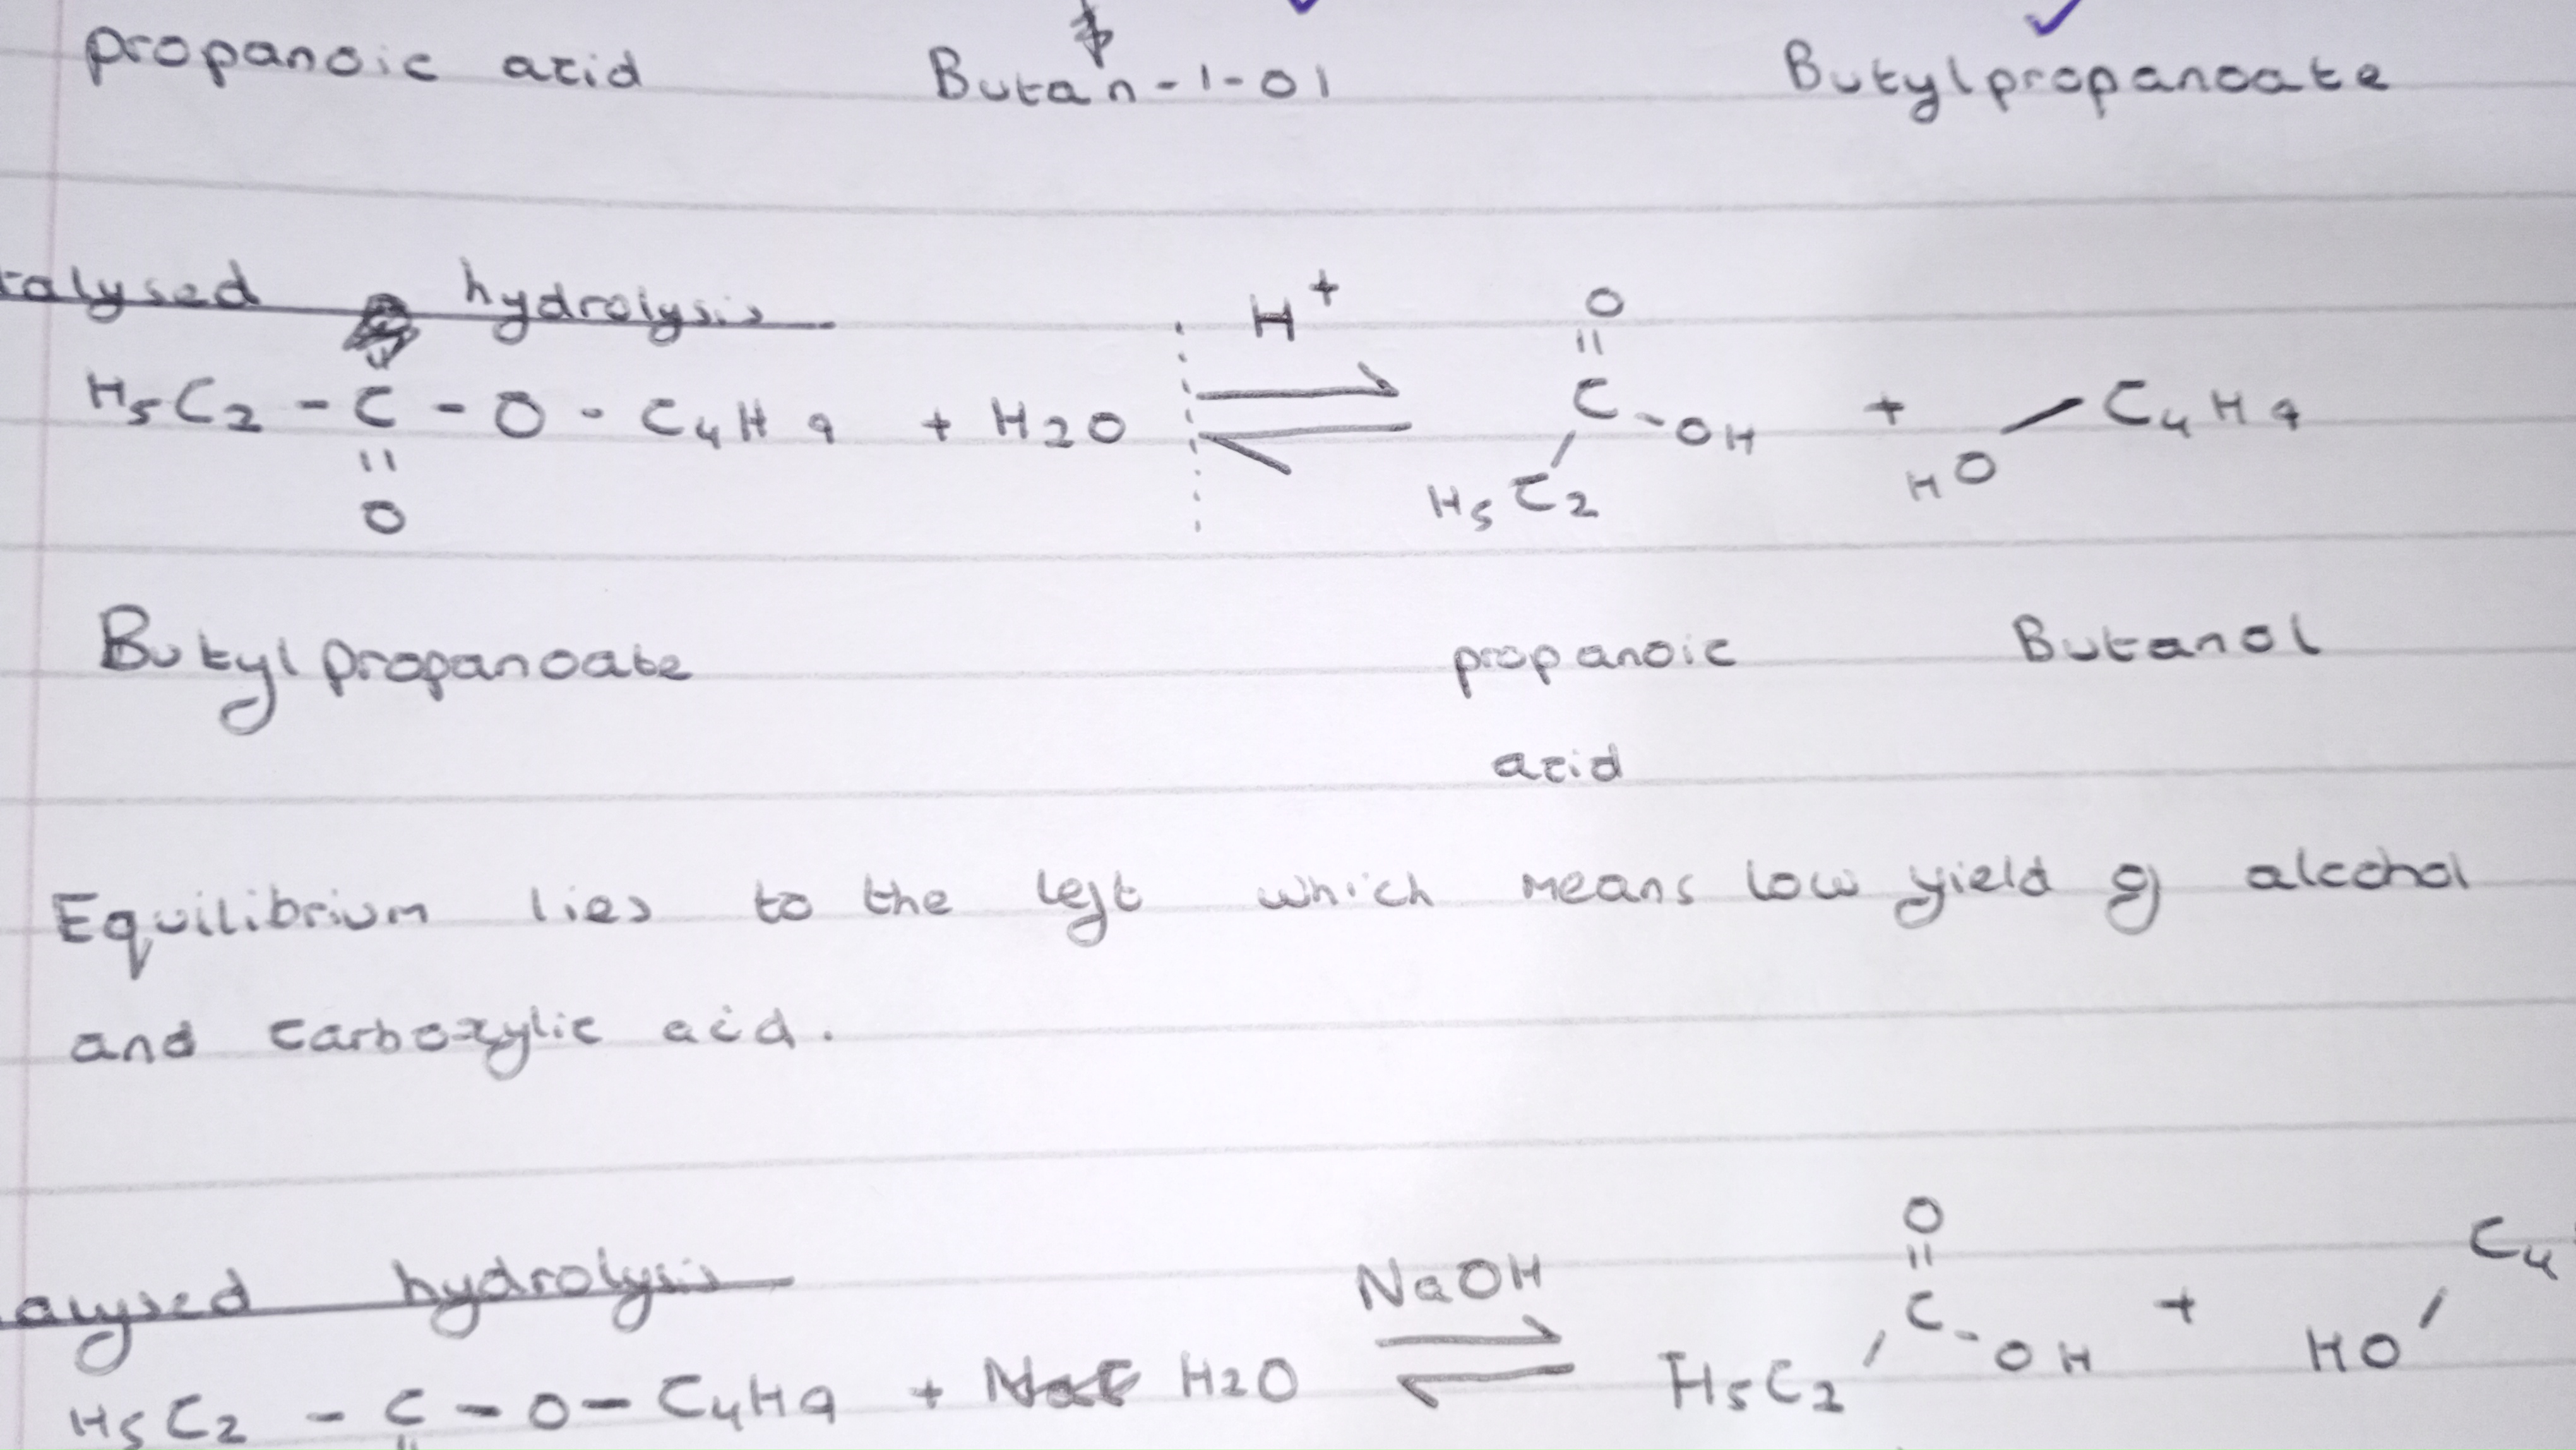 propanoic acid Butan-1-ol Butylpropanoate
talysed hydrolysis
H+ O
H5C2 - C - O - C4H9 + H2O ⇌ C - OH + HO - C4H9
O H5C2
Butylpropanoate propanoic Butanol
acid
Equilibrium lies to the left which means low yield of alcohol
and carboxylic acid.
alysed hydrolysis NaOH O C4
H5C2 - C - O - C4H9 + H2O ⇌ H5C2 C - OH + HO